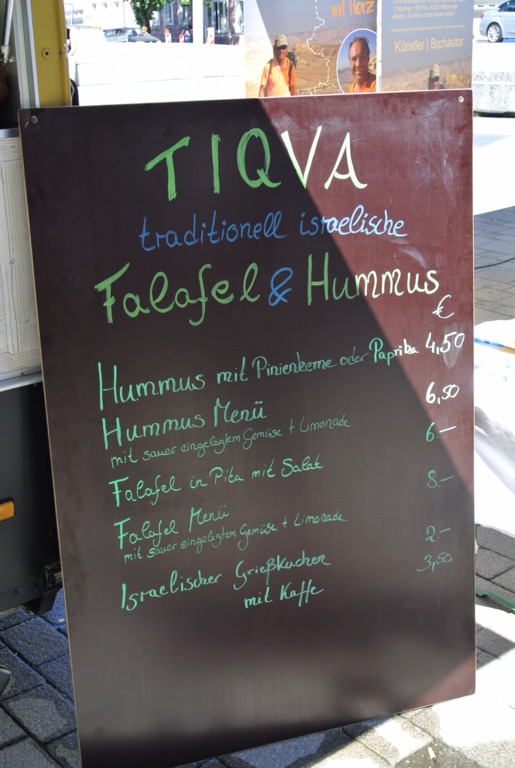 mit Herz
Künstler | Buchautor
TIQVA
traditionell israelische
Falafel & Hummus
€
Hummus mit Pinienkerne oder Paprika 4,50
Hummus Menü 6,50
mit sauer eingelegtem Gemüse + Limonade
Falafel in Pita mit Salat 6.-
Falafel Menü 8.-
mit sauer eingelegtem Gemüse + Limonade
Israelischer Grießkuchen 2.-
mit Kaffe 3,50